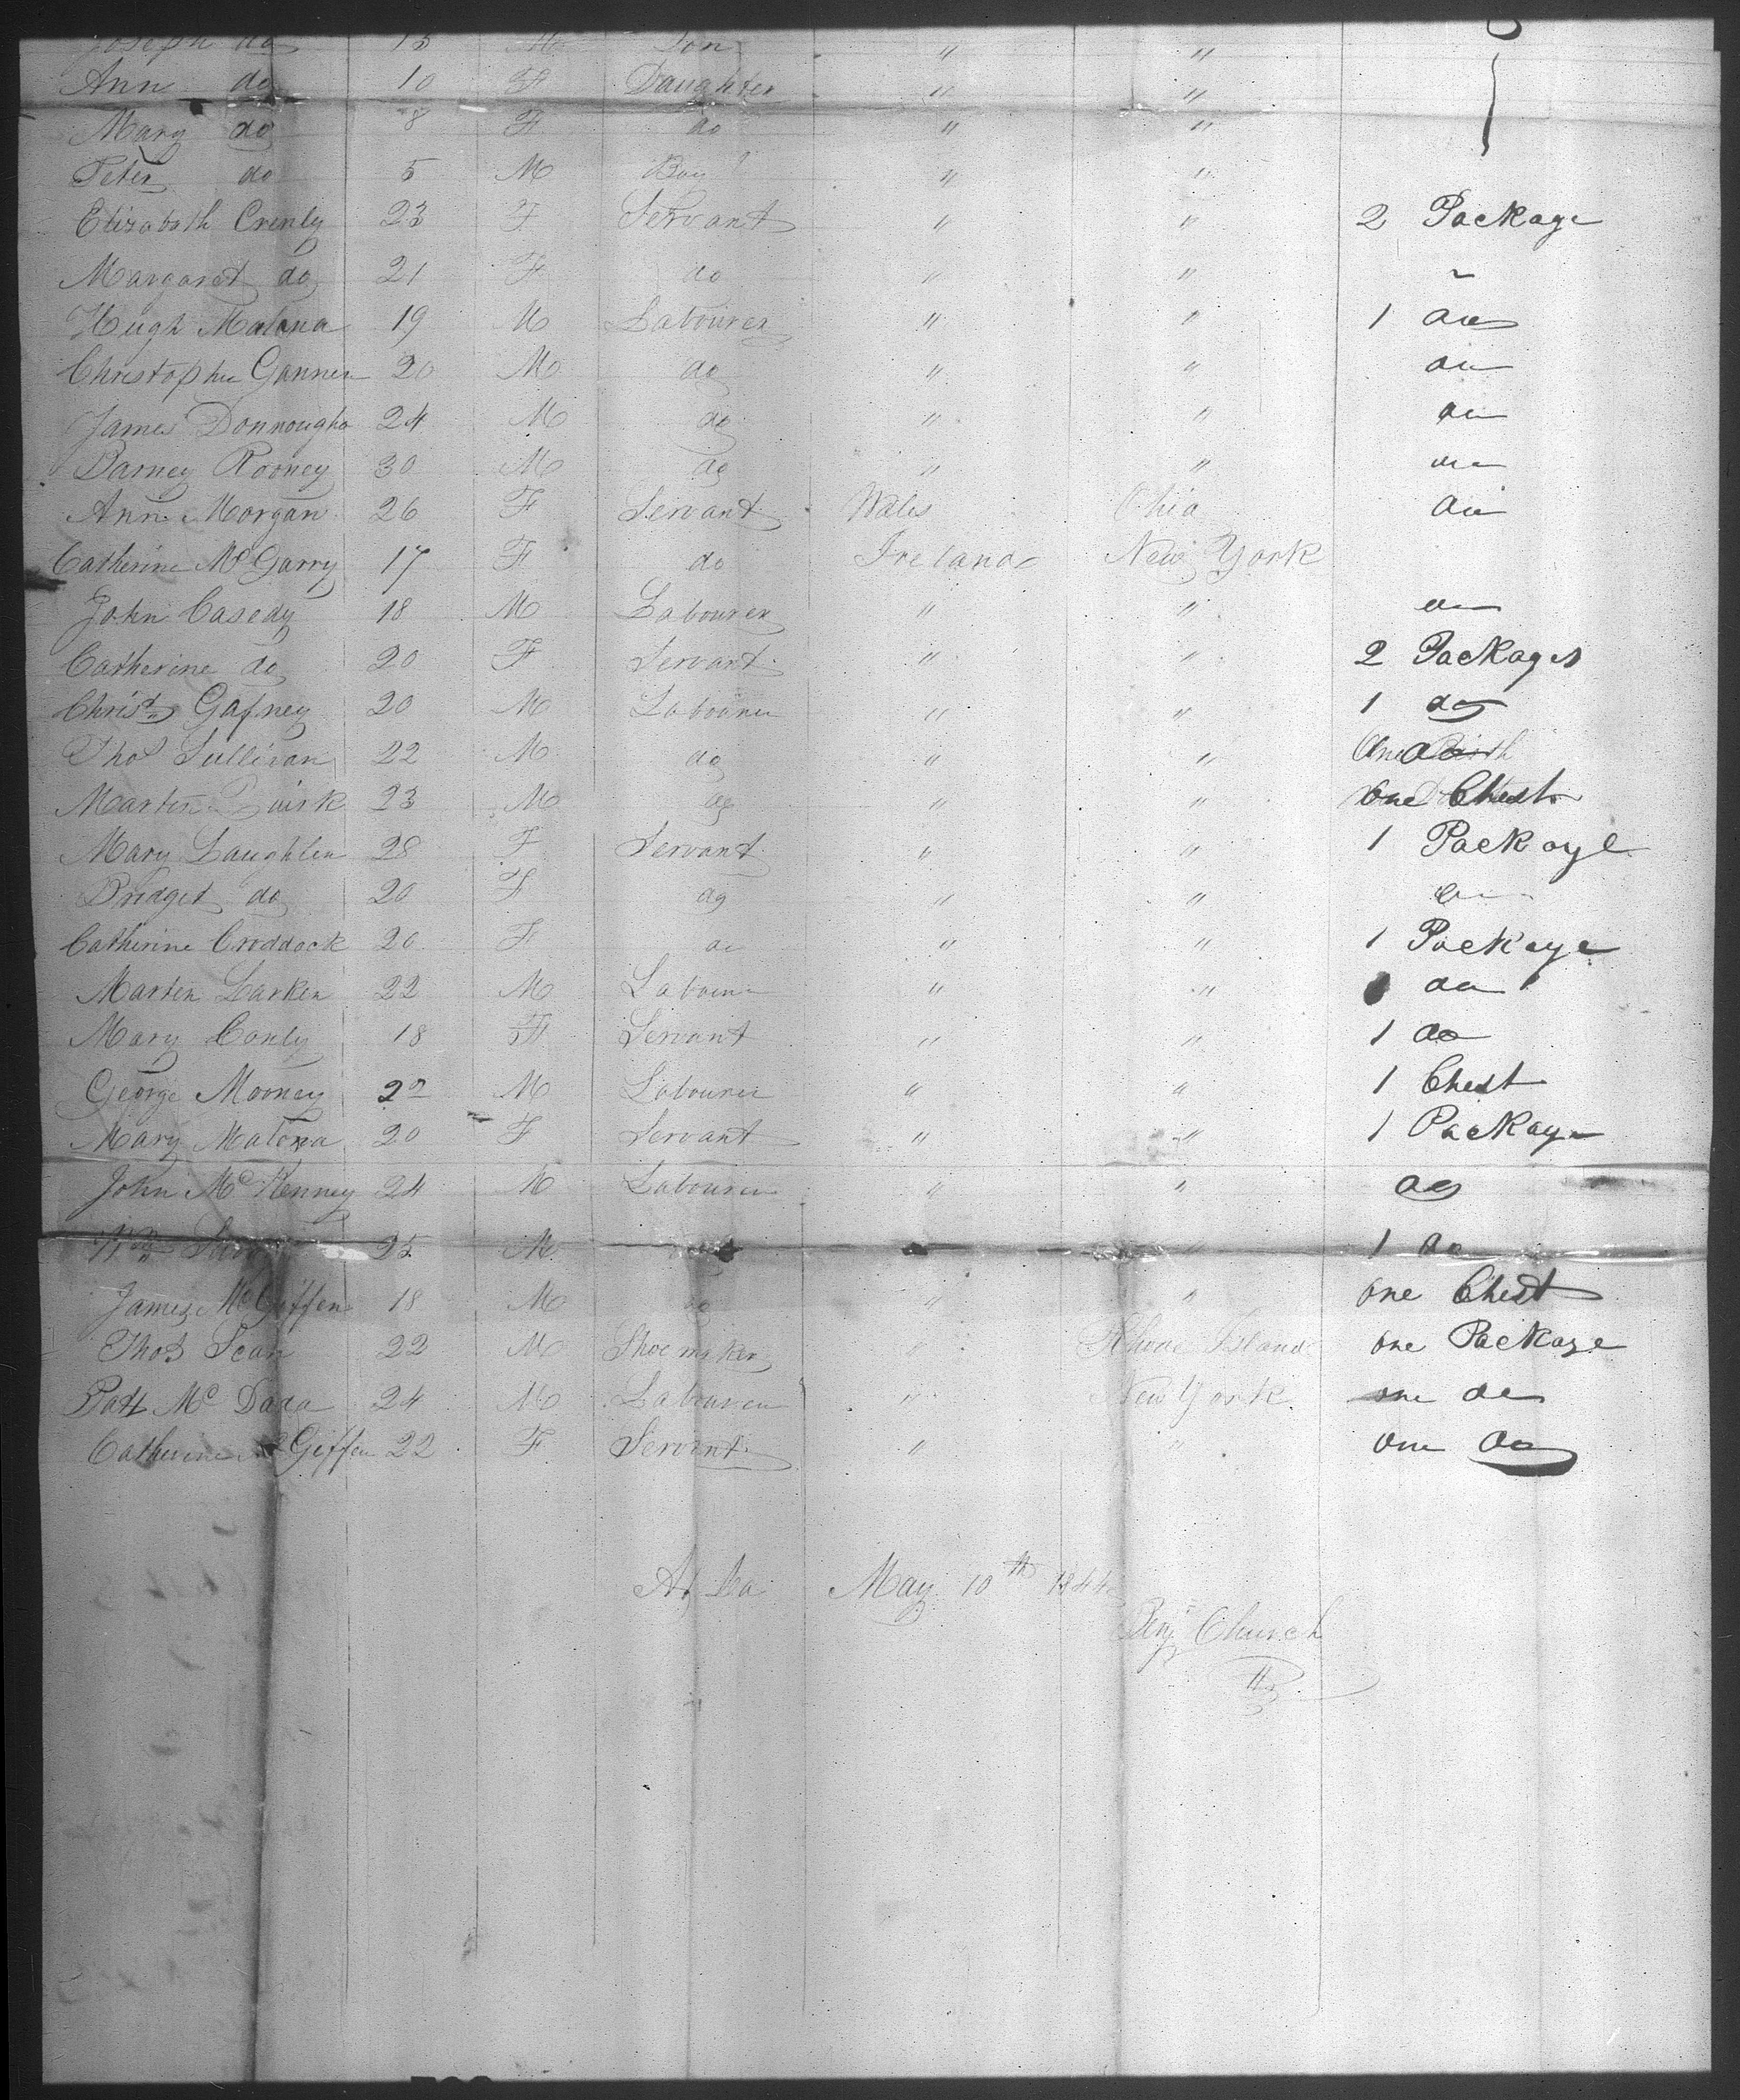 Joseph do 15 M Son " "
Ann do 10 F Daughter " "
Mary do 8 F do " "
Peter do 5 M Boy " "
Elizabath Crenly 23 F Servant " " 2 Package
Margaret do 21 F do " " "
Hugh Malona 19 M Labourer " " 1 do
Christopher Gannen 20 M do " " do
James Donnougho 24 M do " " do
Barney Rooney 30 M do " " do
Ann Morgan 26 F Servant Wales Ohio do
Catherine McGarry 17 F do Ireland New York
John Casedy 18 M Labourer " " do
Catherine do 20 F Servant " " 2 Packages
Christn Gafney 20 M Labourer " " 1 do
Thos Sullivan 22 M do " "
Marten Quirk 23 M do " " one Chest
Mary Laughlen 28 F Servant " " 1 Package
Bridget do 20 F do " "
Catherine Croddock 20 F do " " 1 Package
Marten Larken 22 M Labourer " " do
Mary Conly 18 F Servant " " 1 do
George Mooney 22 M Labourer " " 1 Chest
Mary Malona 20 F Servant " " 1 Package
John McKenney 24 M Labourer " " do
Wm 25 M " 1 do
James McGiffen 18 M do " " one Chest
Thos Scan 22 M Shoemaker " Rhode Island one Package
Patt McDada 24 M Labourer " New York one do
Catherine McGiffen 22 F Servant " " one do
At La May 10th 1844
Benj Church